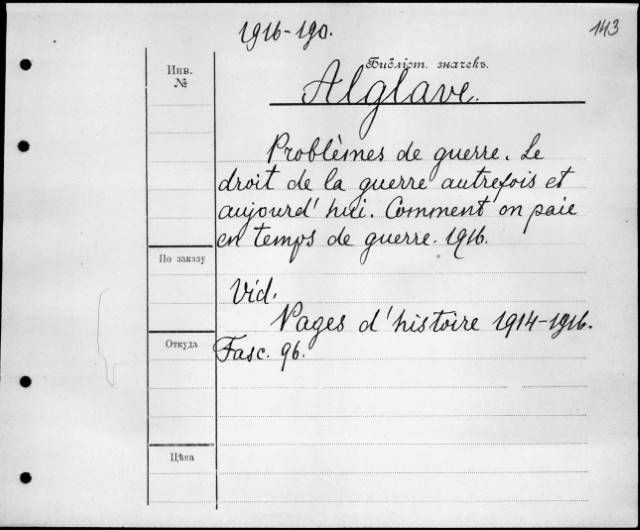 1916-190.
143
Инв.
№
Библіот. значекъ.
Alglave.
Problèmes de guerre. Le
droit de la guerre autrefois et
aujourd'hui. Comment on paie
en temps de guerre. 1916.
По заказу
Vid.
Pages d'histoire 1914-1916.
Откуда
Fasc. 96.
Цѣна